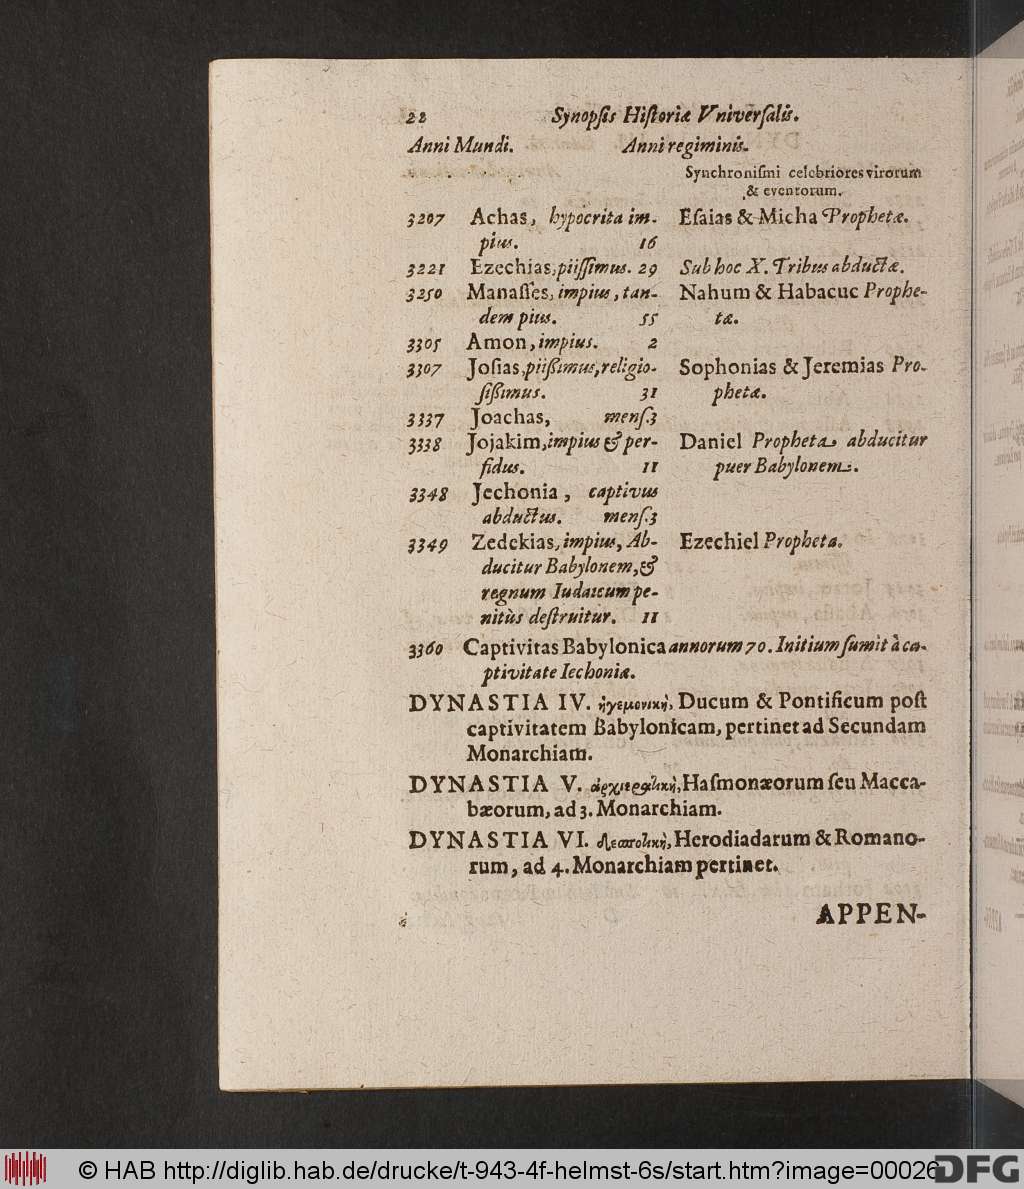 22 Synopſis Hiſtoriæ Vniverſalis.
Anni Mundi. Anni regiminis.
Synchroniſmi celebriores virorum
& eventorum.
3207 Achas, hypocrita im- Eſaias & Micha Prophetæ.
pius. 16
3221 Ezechias, piiſſimus. 29 Sub hoc X. Tribus abductæ.
3250 Manaſſes, impius, tan- Nahum & Habacuc Prophe-
dem pius. 55 tæ.
3305 Amon, impius. 2
3307 Joſias, piißimus, religio- Sophonias & Jeremias Pro-
ſißimus. 31 phetæ.
3337 Joachas, menſ. 3
3338 Jojakim, impius & per- Daniel Propheta abducitur
fidus. 11 puer Babylonem.
3348 Jechonia, captivus
abductus. menſ. 3
3349 Zedekias, impius, Ab- Ezechiel Propheta.
ducitur Babylonem, &
regnum Iudaicum pe-
nitùs deſtruitur. 11
3360 Captivitas Babylonica annorum 70. Initium ſumit à ca-
ptivitate Iechoniæ.
DYNASTIA IV. ἡγεμονικὴ, Ducum & Pontificum poſt
captivitatem Babylonicam, pertinet ad Secundam
Monarchiam.
DYNASTIA V. ἀρχιερατικὴ, Haſmonæorum ſeu Macca-
bæorum, ad 3. Monarchiam.
DYNASTIA VI. δεσποτικὴ, Herodiadarum & Romano-
rum, ad 4. Monarchiam pertinet.
APPEN-
© HAB http://diglib.hab.de/drucke/t-943-4f-helmst-6s/start.htm?image=00026
DFG